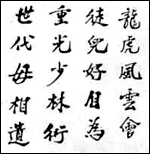 龍虎風雲會
徒兒好自為
重光少林術
世代毋相遺